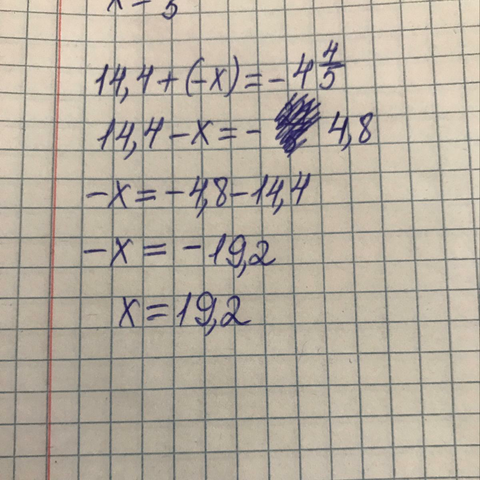 14,4 + (-x) = -4 4/5
14,4 - x = - 4,8
-x = -4,8 - 14,4
-x = -19,2
x = 19,2